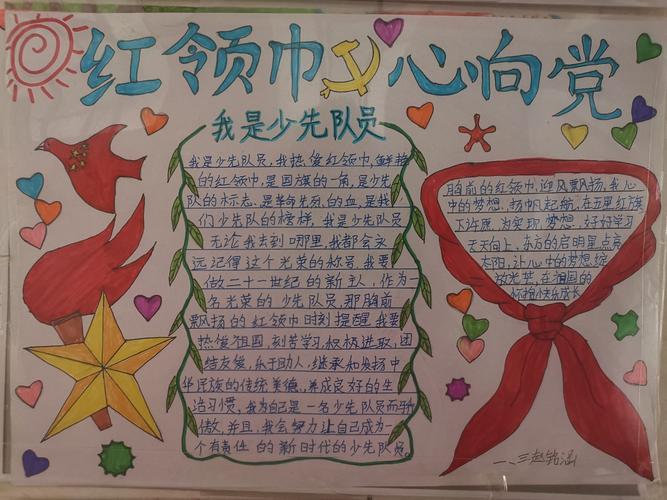 红领巾心向党
我是少先队员
我是少先队员,我热爱红领巾,鲜艳
的红领巾,是国旗的一角,是少先
队的标志、是革命先烈的血,是我
们少先队的榜样,我是少先队员
无论我去到哪里,我都会永
远记得这个光荣的称号.我要
做二十一世纪的新主人,作为一
名光荣的少先队员.那胸前
飘扬的红领巾时刻提醒我要
热爱祖国,刻苦学习,积极进取,团
结友爱,乐于助人,继承和发扬中
华民族的传统美德,养成良好的生
活习惯,我为自己是一名少先队员而骄
傲.并且,我会努力让自己成为一
个有责任的新时代的少先队员。
胸前的红领巾,迎风飘扬,我心
中的梦想,扬帆起航,在五星红旗
下许愿,为实现梦想,好好学习
天天向上,东方的启明星点亮
太阳,让心中的梦想绽
放光芒,在祖国的
怀抱快乐成长
一、三赵铭涵